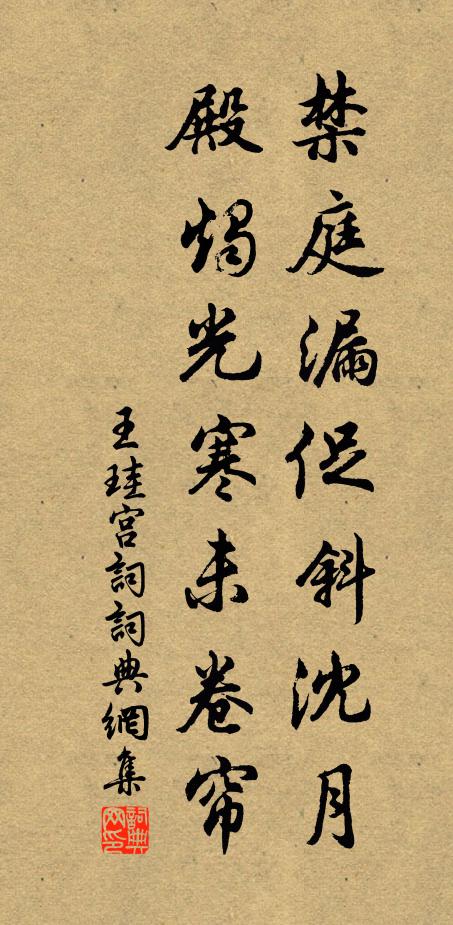 禁庭漏促斜沈月
殿燭光寒未卷帘
王珪宫詞詞典網集
詞典
网印